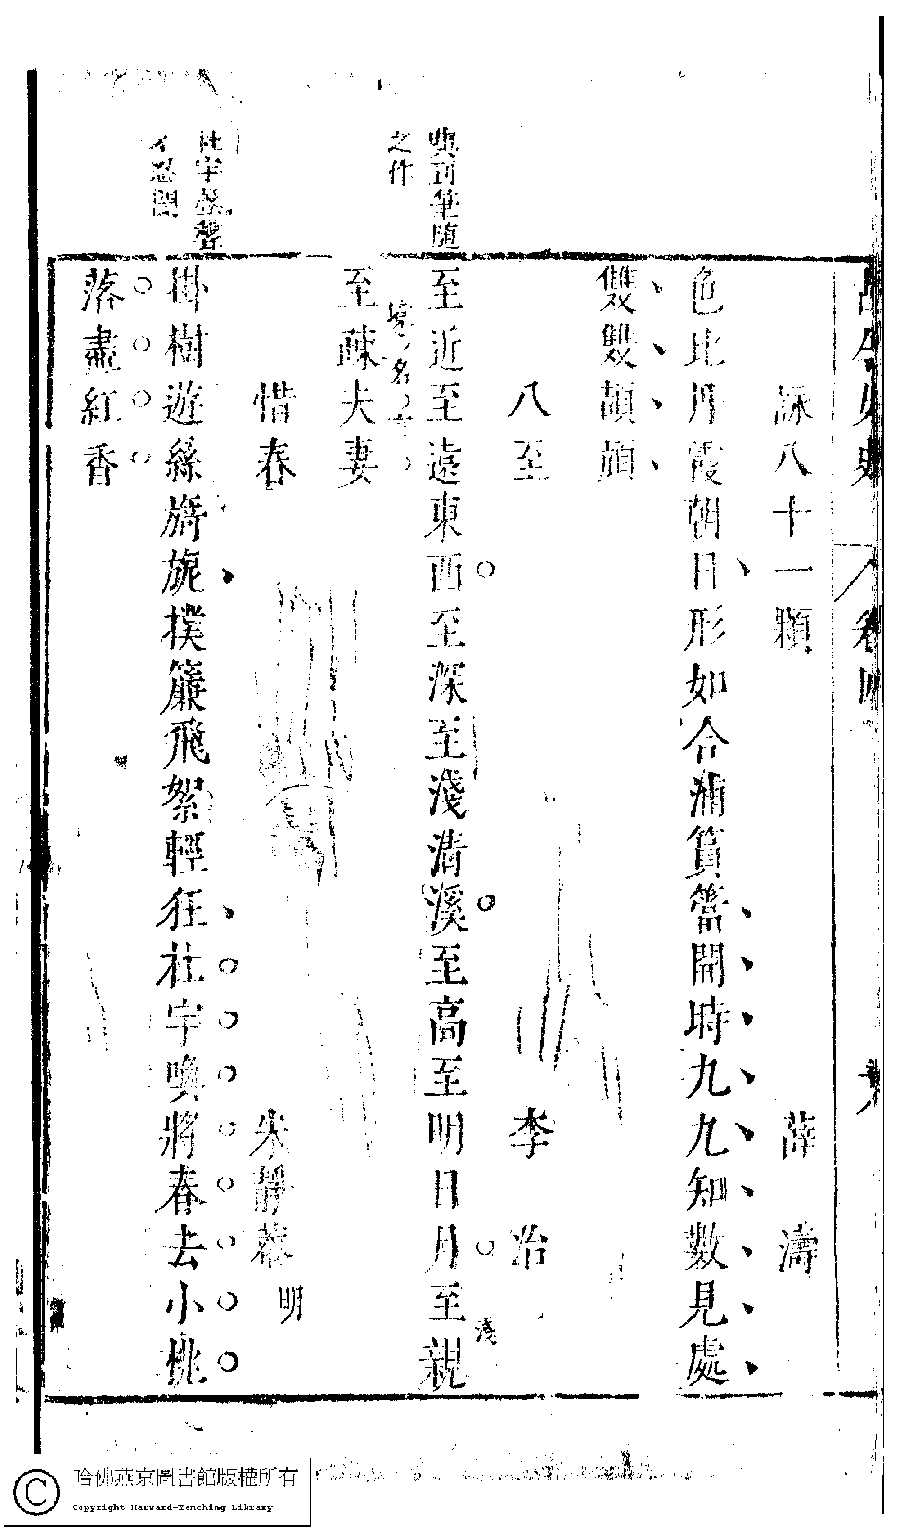 詠八十一顆 薛濤
色比丹霞朝日形如合浦篔簹開時九九知數見處
雙雙頡頏
八至 李冶
至近至遠東西至深至淺清溪至高至明日月至親
至疎夫妻
惜春 朱靜菴 明
掛樹遊絲旖旎撲簾飛絮輕狂杜宇喚將春去小桃
落盡紅香
筆隨
之作
杜宇
忍聞
卷四
哈佛燕京圖書館版權所有
Copyright Harvard-Yenching Library